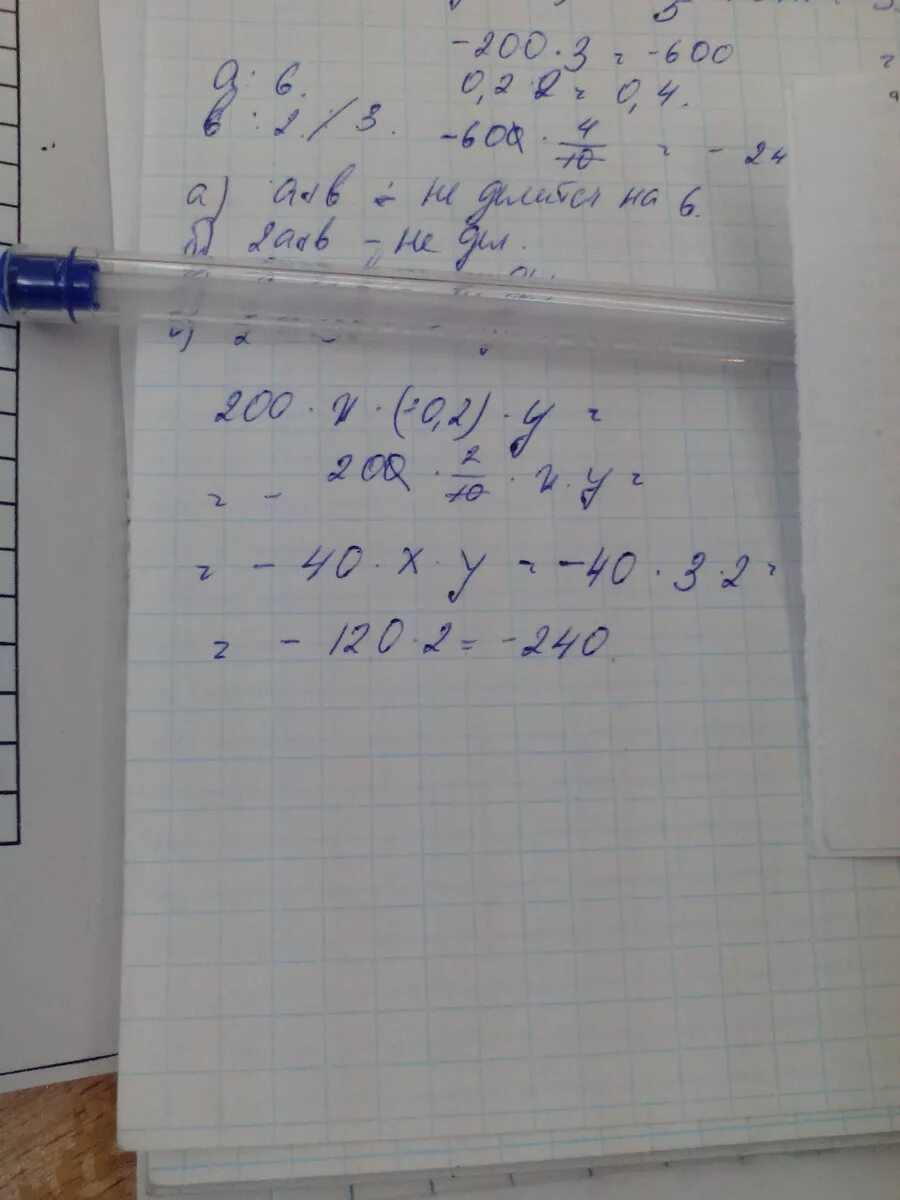 -200 · 3 = -600
а : 6.
0,2 · 2 = 0,4.
в : 2 / 3.
-600 · 4/10 = - 24
а) а+в - не делится на 6.
б) 2а+в - не дел.
200 · х · (-0,2) · у =
= - 200 · 2/10 · х · у =
= - 40 · х · у = -40 · 3 · 2 =
= - 120 · 2 = -240.